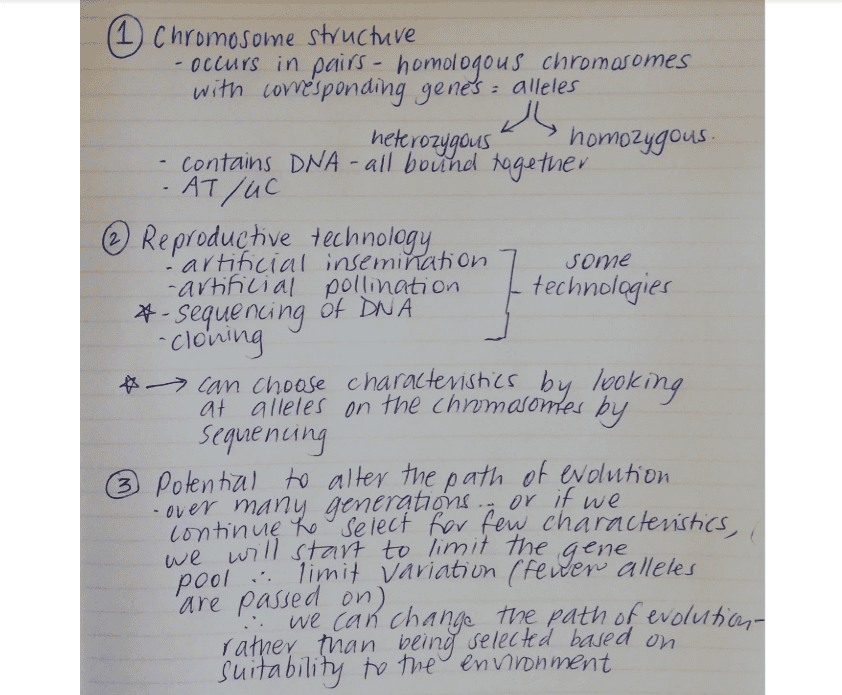 ① Chromosome structure
- occurs in pairs - homologous chromosomes
with corresponding genes = alleles
heterozygous homozygous.
- contains DNA - all bound together
- AT/GC
② Reproductive technology
- artificial insemination
some
- artificial pollination
technologies
☆ - sequencing of DNA
- cloning
☆ → can choose characteristics by looking
at alleles on the chromosomes by
sequencing
③ Potential to alter the path of evolution
- over many generations... or if we
continue to select for few characteristics,
we will start to limit the gene
pool ∴ limit variation (fewer alleles
are passed on)
∴ we can change the path of evolution -
rather than being selected based on
suitability to the environment